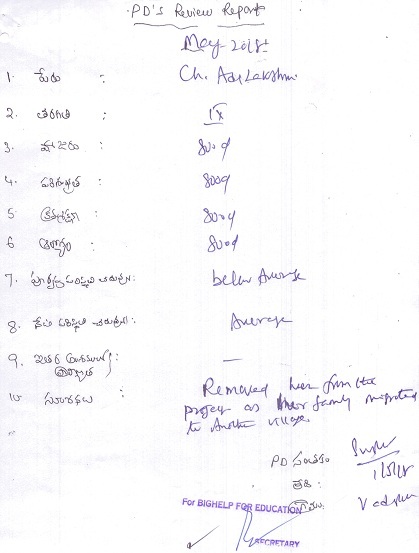 PD's Review Report
May-2018
1. పేరు : Ch. Adi Lakshmi
2. తరగతి : IX
3. హాజరు : Good
4. పరిశుభ్రత : Good
5 క్రమశిక్షణ : Good
6 ఆరోగ్యం : Good
7. below Average
8. Average
9. ఇతర : —
10 సూచనలు : Removed her from the
project as her family migrated
to Another village.
PD సంతకం
తేది : 1/5/18
For BIGHELP FOR EDUCATION
SECRETARY